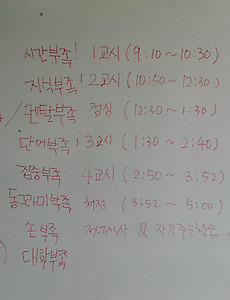 시간부족! 1교시 (9:10 ~ 10:30)
지식부족! 2교시 (10:50 ~ 12:30)
멘탈부족 점심 (12:30 ~ 1:30)
단어부족! 3교시 (1:30 ~ 2:40)
집중부족 4교시 (2:50 ~ 3:52)
동그라미부족 채점 (3:52 ~ 5:00)
돈부족 저녁식사 & 자기주도학습
대학부족